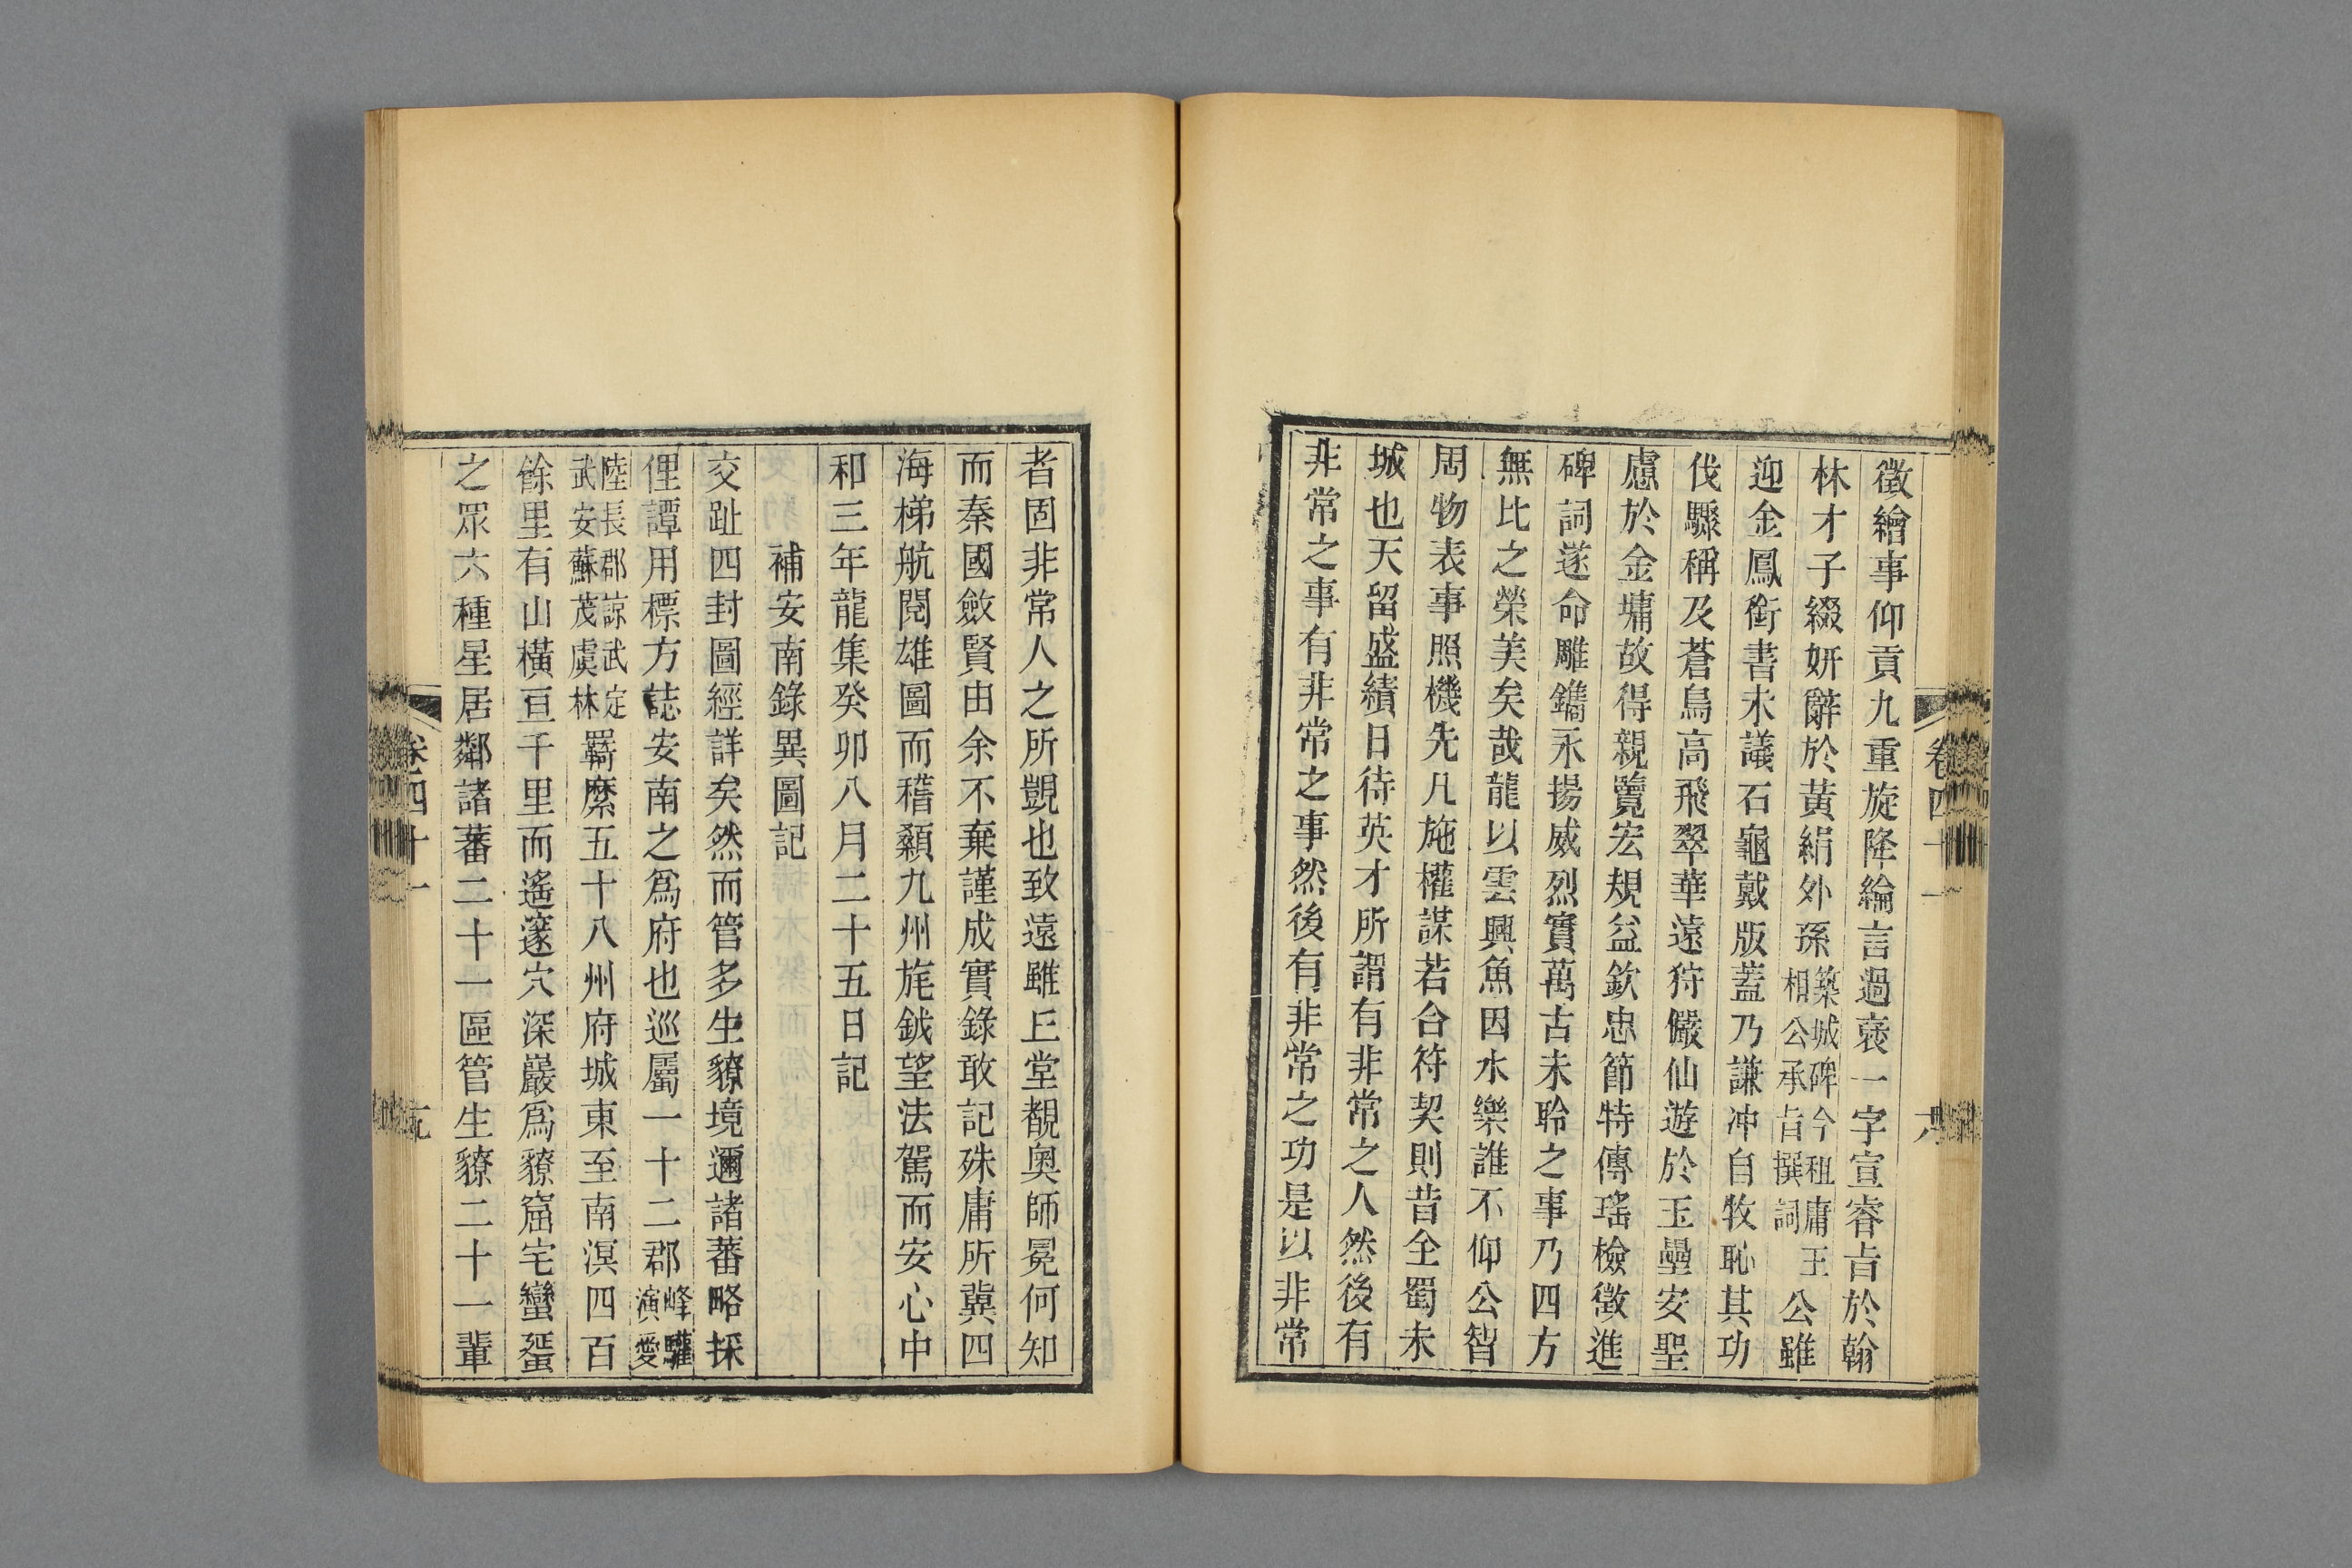 徵繪事仰貢九重旋降綸言過蒙一字宣睿旨於翰
林才子綴妍辭於黃絹外孫築城碑今租庸王相公承旨撰詞公雖
迎金鳳銜書未議石龜戴版蓋乃謙沖自牧恥其功
伐驟稱及蒼鳥高飛翠華遠狩儼仙遊於玉壘安聖
慮於金墉故得親覽宏規益欽忠節特傳瑤檢徵進
碑詞遂命雕鐫永揚威烈實萬古未聆之事乃四方
無比之榮美矣哉龍以雲興魚因水樂誰不仰公智
周物表事照機先凡施權謀若合符契則昔全蜀未
城也天留盛績日待英才所謂有非常之人然後有
非常之事有非常之事然後有非常之功是以非常
卷四十一
六
者固非常人之所覬也致遠雖丘堂覩奧師冕何知
而秦國斂賢由余不棄謹成實錄敢記殊庸所冀四
海梯航閱雄圖而稽顙九州旄鉞望法駕而安心中
和三年龍集癸卯八月二十五日記
補安南錄異圖記
交趾四封圖經詳矣然而管多生獠境邇諸蕃略採
俚譚用標方誌安南之爲府也巡屬一十二郡峰驩演愛
陸長郡諒武定武安蘇茂虞林羈縻五十八州府城東至南溟四百
餘里有山橫亘千里而遙邃穴深巖爲獠窟宅蠻蜑
之眾六種星居鄰諸蕃二十一區管生獠二十一輩
卷四十一